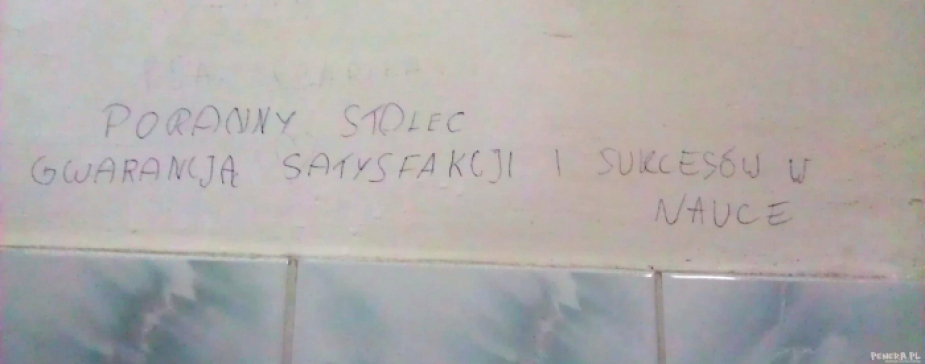 PORANNY STOLEC
GWARANCJĄ SATYSFAKCJI I SUKCESÓW W
NAUCE
PENERA.PL